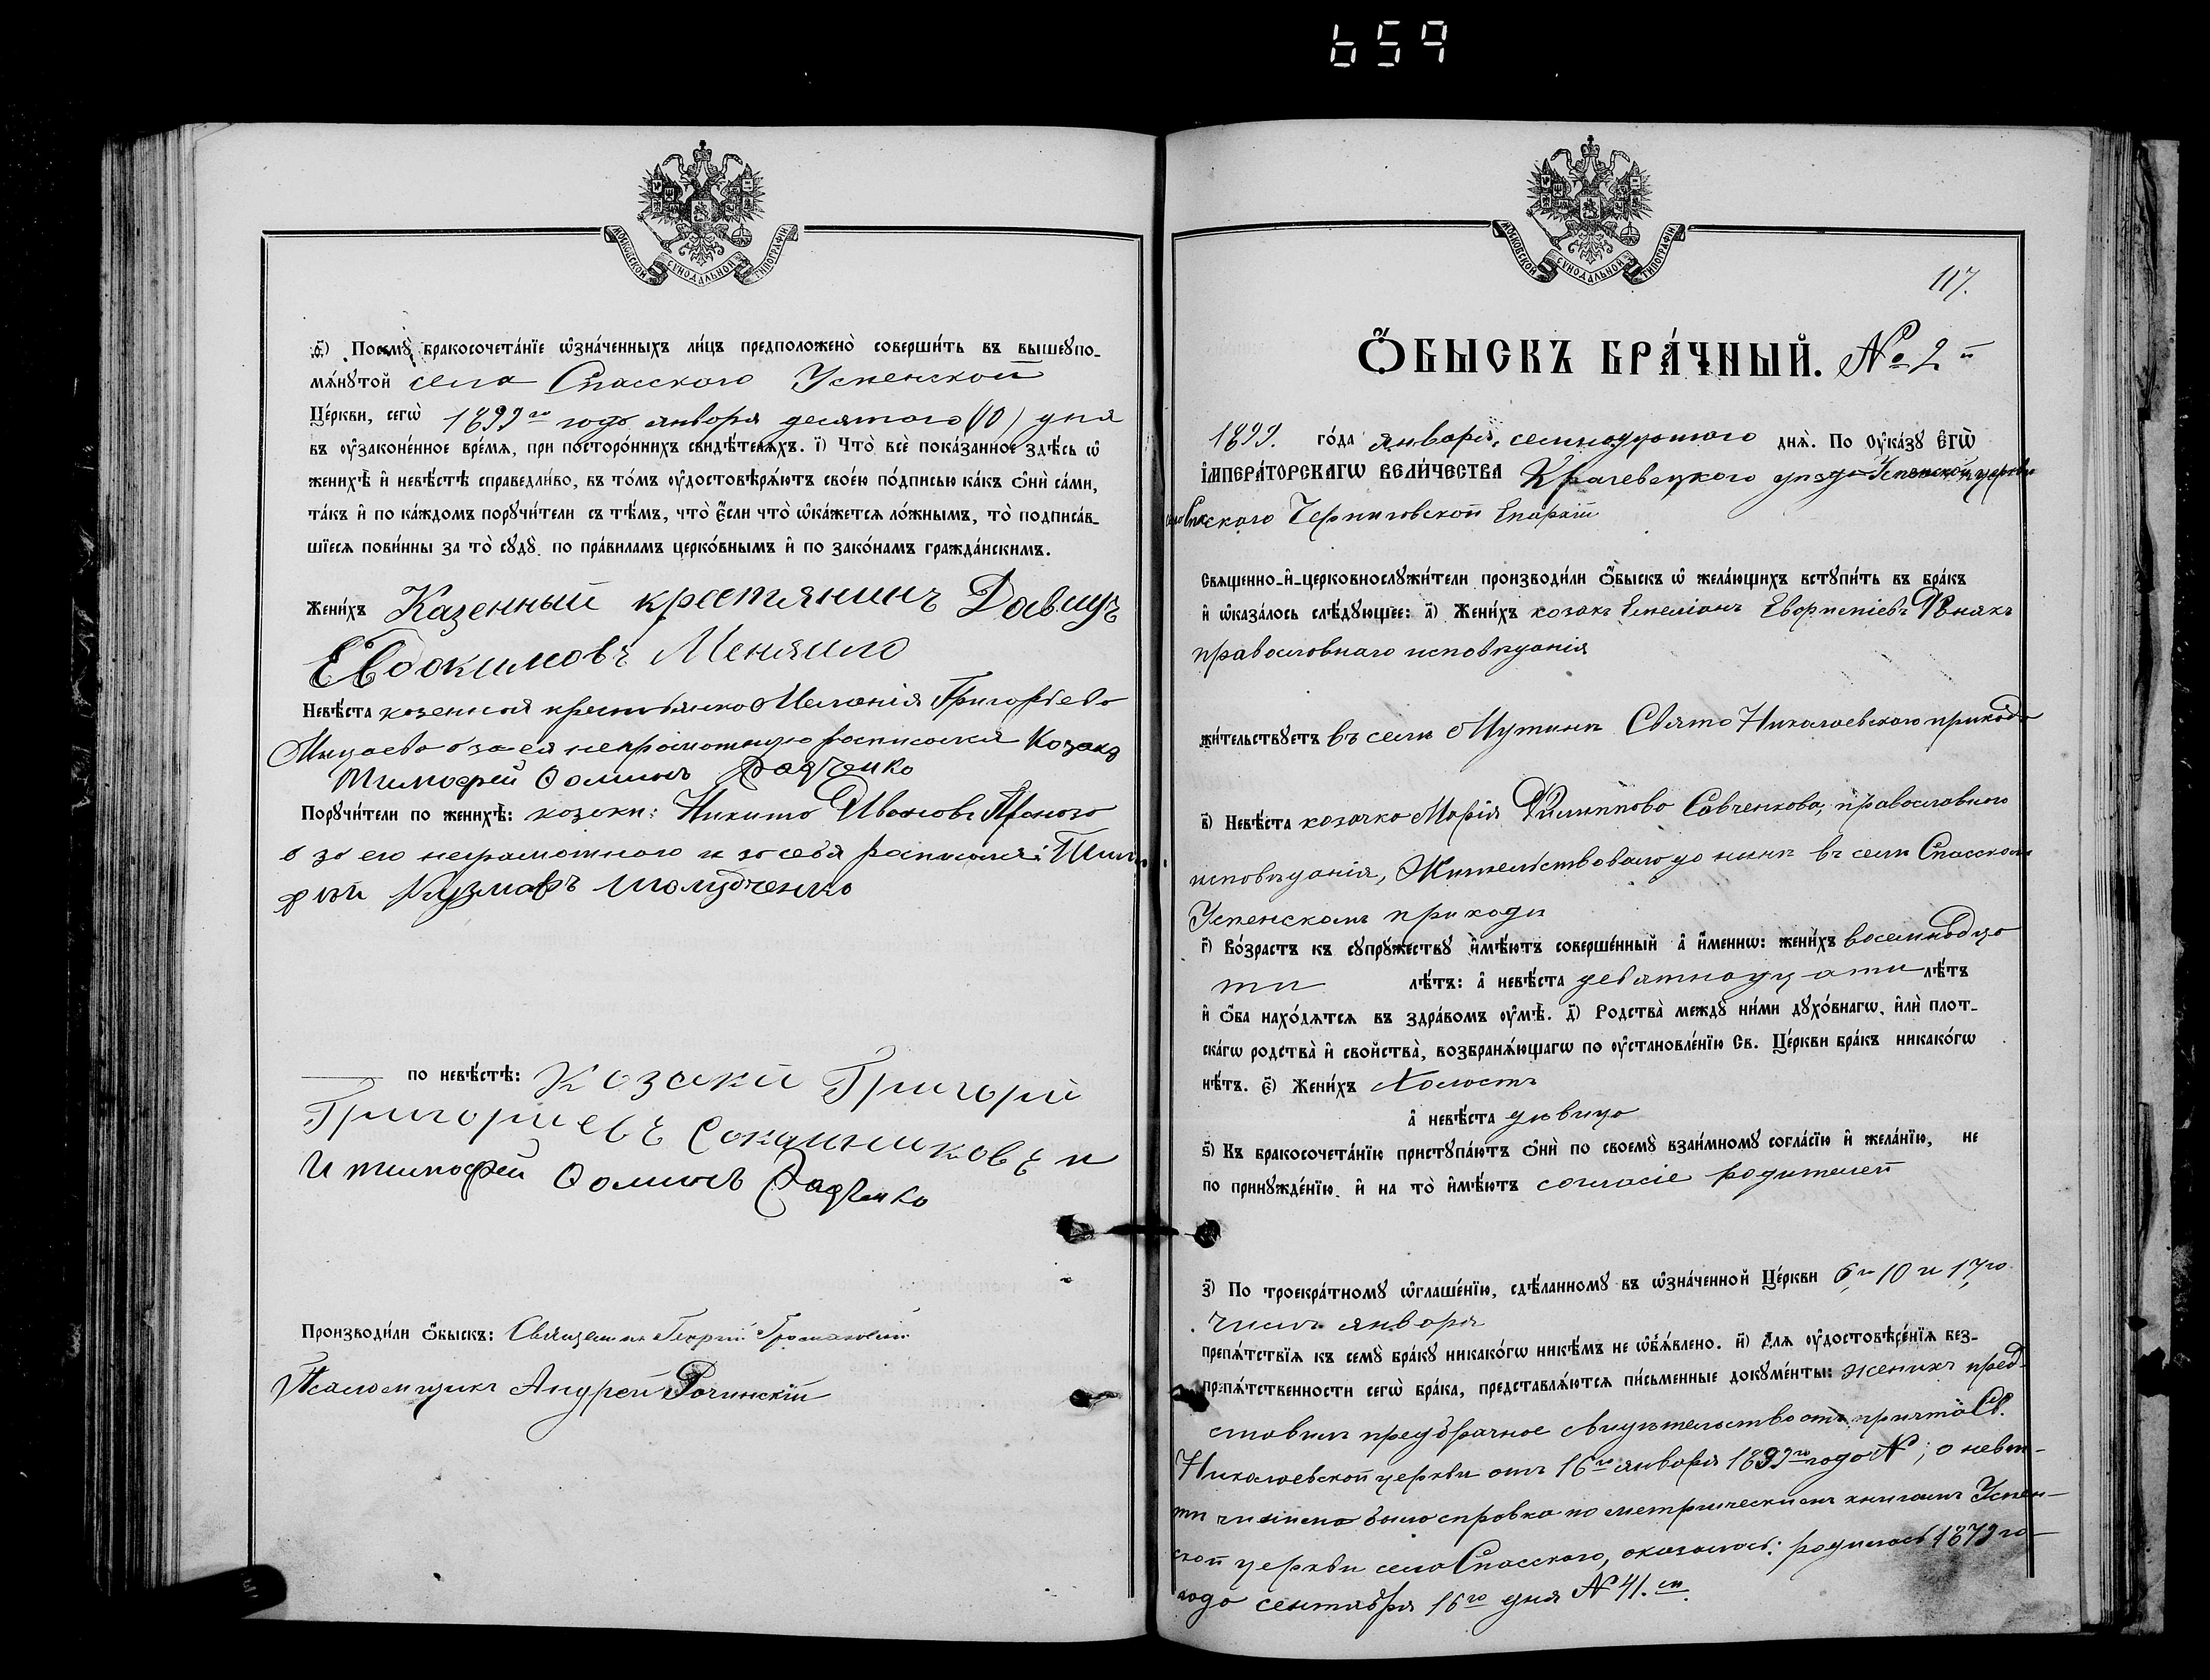 659
МОСКОВСКОЙ СѴНОДАЛЬНОЙ ТИПОГРАФІИ
ѳ҃) Посемꙋ̀ бракосочета́нїе ѡ҆зна́ченныхъ ли́цъ предположено̀ соверши́ть въ вышеꙋпо-
мѧ́нꙋтой села Спасскаго Успенской
Це́ркви, сегѡ̀ 1899го года января десятаго (10) дня
въ ᲂу҆законе́нное вре́мѧ, при посторо́ннихъ свидѣ́телѧхъ. і҃) Что̀ всѐ пока́занное здѣ́сь ѡ҆
женихѣ̀ и҆ невѣ́стѣ справедли́во, въ то́мъ ᲂу҆достовѣрѧ́ютъ свое́ю по́дписью ка́къ ѻ҆нѝ са́ми,
та́къ и҆ по ка́ждомъ порꙋчи́тели съ тѣ́мъ, что̀ є҆́сли что̀ ѡ҆ка́жетсѧ ло́жнымъ, то̀ подписа́в-
шїесѧ пови́нны за то̀ сꙋдꙋ̀ по пра́виламъ церко́внымъ и҆ по зако́намъ гражда́нскимъ.
Жени́хъ Казенный крестянинъ Давидъ
Евдокимовъ Меняило
Невѣ́ста казенная крестьянка Меланія Григорьева
за ея неграмотную росписался Козакъ
Тимофей Ѳоминъ Радченко
Порꙋчи́тели по женихѣ̀: козаки: Никита Ивановъ
а за его неграмотнаго и за себя росписался: Тимо
фѣй Кузмовъ Шолудченко
по невѣ́стѣ: Козаки Григорій
Григориевъ Сокольниковъ и
И тимофей Ѳоминъ Радченко
Производи́ли ѻ҆́быскъ: Священникъ Георгій
Псаломщикъ Андрей Рочинскій
МОСКОВСКОЙ СѴНОДАЛЬНОЙ ТИПОГРАФІИ
117.
Ѻ҆́БЫСКЪ БРА́ЧНЫЙ. № 2й
1899. го́да января, семнадцатаго днѧ̀. По Оу҆ка́зꙋ Є҆гѡ̀
І҆мпера́торскагѡ вели́чества Кролевецкого уѣзда Успенской церкви
села Спасского Черниговской Епархіи
Свѧщенно-и҆-церковнослꙋжи́тели производи́ли ѻ҆́быскъ ѡ҆ жела́ющихъ встꙋпи́ть въ бра́къ
и҆ ѡ҆каза́лось слѣ́дꙋющее: а҃) Жени́хъ козакъ Емеліанъ
православнаго исповѣданія
жи́тельствꙋетъ въ селѣ Мутинѣ Свято Николаевскаго прихода
в҃) Невѣ́ста козачка Марія Филиппова Савченкова, православнаго
исповѣданія, Жительствовала до нынѣ въ селѣ Спасскомъ
Успенскомъ приходѣ
г҃) Во́зрастъ къ сꙋпрꙋ́жествꙋ и҆мѣ́ютъ соверше́нный а҆ и҆́менно: жени́хъ восемнадца
ти лѣ́тъ: а҆ невѣ́ста девятнадцати лѣ́тъ
и҆ ѻ҆́ба нахо́дѧтсѧ въ здра́вомъ ᲂу҆мѣ̀. д҃) Родства̀ междꙋ̀ ни́ми дꙋхо́внагѡ, и҆лѝ плот-
ска́гѡ родства̀ и҆ свойства̀, возбранѧ́ющагѡ по ᲂу҆становле́нїю Св. Це́ркви бра́къ никако́гѡ
нѣ́тъ. є҃) Жени́хъ Холостъ
а҆ невѣ́ста дѣвица
ѕ҃) Къ бракосочета́нїю пристꙋпа́ютъ ѻ҆нѝ по своемꙋ̀ взаи́мномꙋ согла́сїю и҆ жела́нїю, не
по принꙋжде́нїю и҆ на то̀ и҆мѣ́ютъ согласіе родителей
з҃) По троекра́тномꙋ ѡ҆глаше́нїю, сдѣ́ланномꙋ въ ѡ҆зна́ченной Це́ркви 6, 10 и 17го
числъ января
препѧ́тствїѧ къ семꙋ̀ бра́кꙋ никако́гѡ никѣ́мъ не ѡ҆бъѧ́влено. и҃) Для ᲂу҆достовѣре́нїѧ без-
препѧ́тственности сегѡ̀ бра́ка, представлѧ́ютсѧ пи́сьменные докꙋме́нты: женихъ пред-
ставилъ предбрачное свидѣтельство отъ причта Св.
Николаевской церкви отъ 16го января 1899го года №; о невѣ-
стѣ чинима была справка по метрическимъ книгамъ Успен-
ской церкви села Спасского, оказалось: родилась 1879го
года сентября 16го дня № 41.